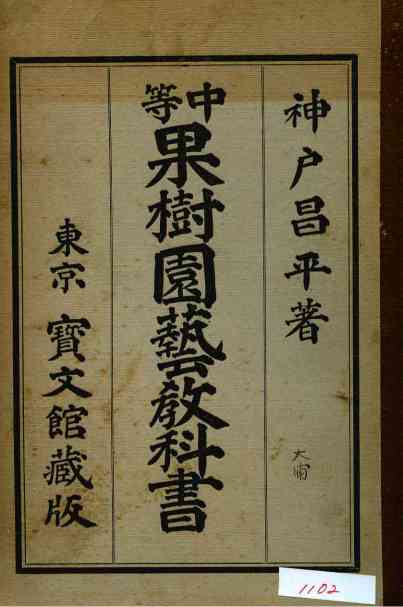 神戸昌平著
中等
果樹園藝教科書
東京 寳文館藏版
1102